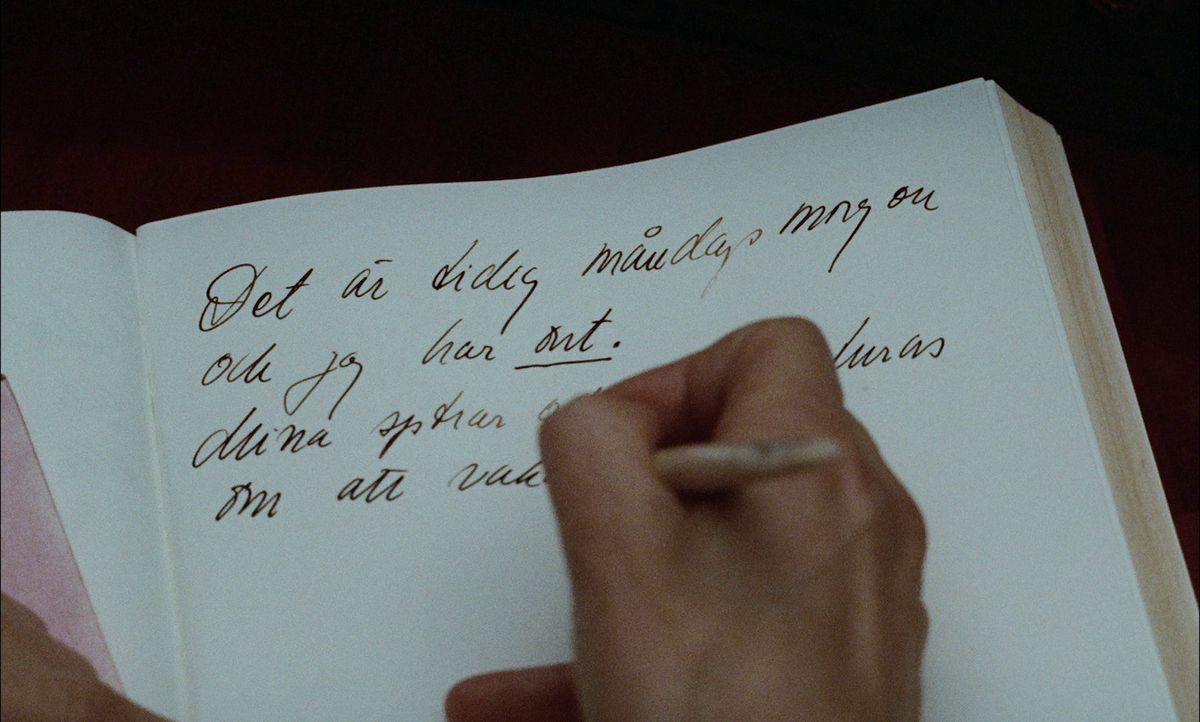 Det är tidig måndagsmorgon
och jag har ont.
Mina systrar turas
om att vak